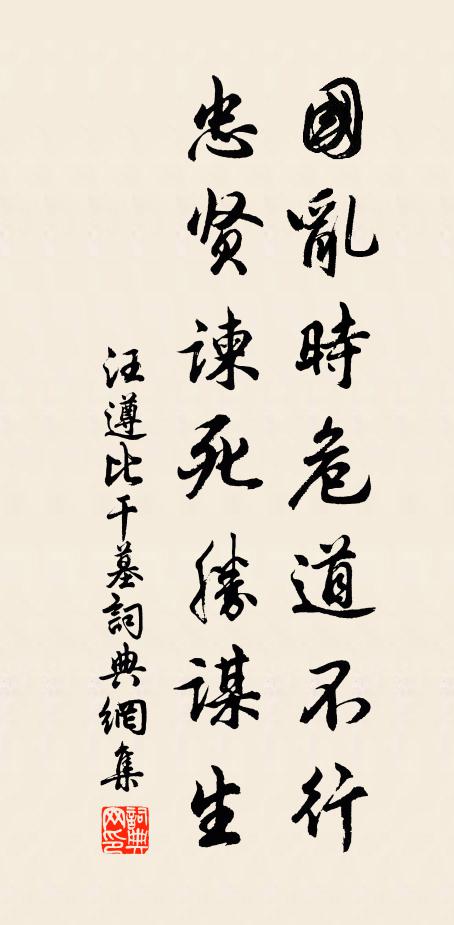 國亂時危道不行
忠贤諫死勝謀生
汪遵比干墓詞典網集
詞典网印